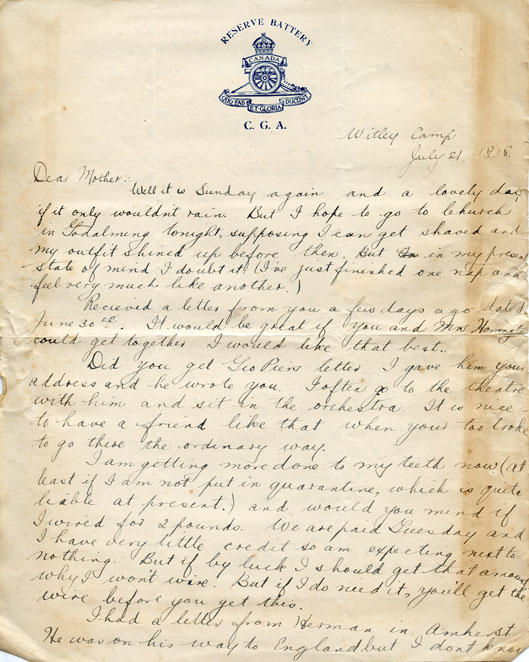 RESERVE BATTERY
CANADA
QUO FAS ET GLORIA DUCUNT
C. G. A.
Witley Camp
July 21, 1918.
Dear Mother:
Well it is Sunday again and a lovely day
if it only wouldn't rain. But I hope to go to church
in Godalming tonight, supposing I can get shaved and
my outfit shined up before then. But in my present
state of mind I doubt it (I've just finished one nap and
feel very much like another.)
Recieved a letter from you a few days ago dated
June 30th. It would be great if you and Mrs
could get together I would like that best.
Did you get Geo Piers letter. I gave him your
address and he wrote you. I often go to the theatre
with him and sit in the orchestra. It is nice
to have a friend like that when your too broke
to go there the ordinary way.
I am getting more done to my teeth now (at
least if I am not put in quarantine, which is quite
liable at present.) and would you mind if
I wired for 2 pounds. We are paid Tuesday and
I have very little credit so am expecting next to
nothing. But if by luck I should get that amount
why I wont wire. But if I do need it, you'll get the
wire before you get this.
I had a letter from Herman in Amherst
He was on his way to England but I dont know